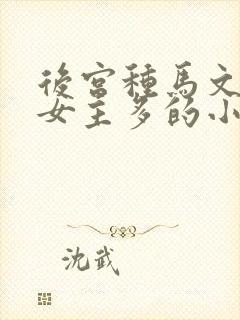 後宮種馬文
女主多的小
沈武